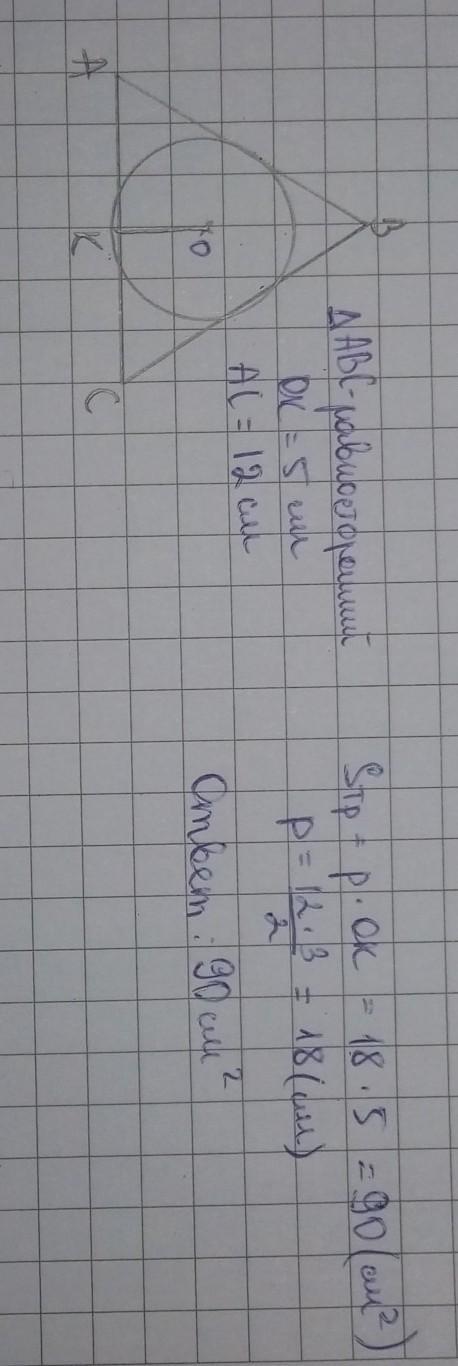 B
O
A
K
C
ΔABC - равносторонний
OK = 5 см
AC = 12 см
Sтр = p · OK = 18 · 5 = 90 (см²)
p = 12 · 3 / 2 = 18 (см)
Ответ: 90 см²